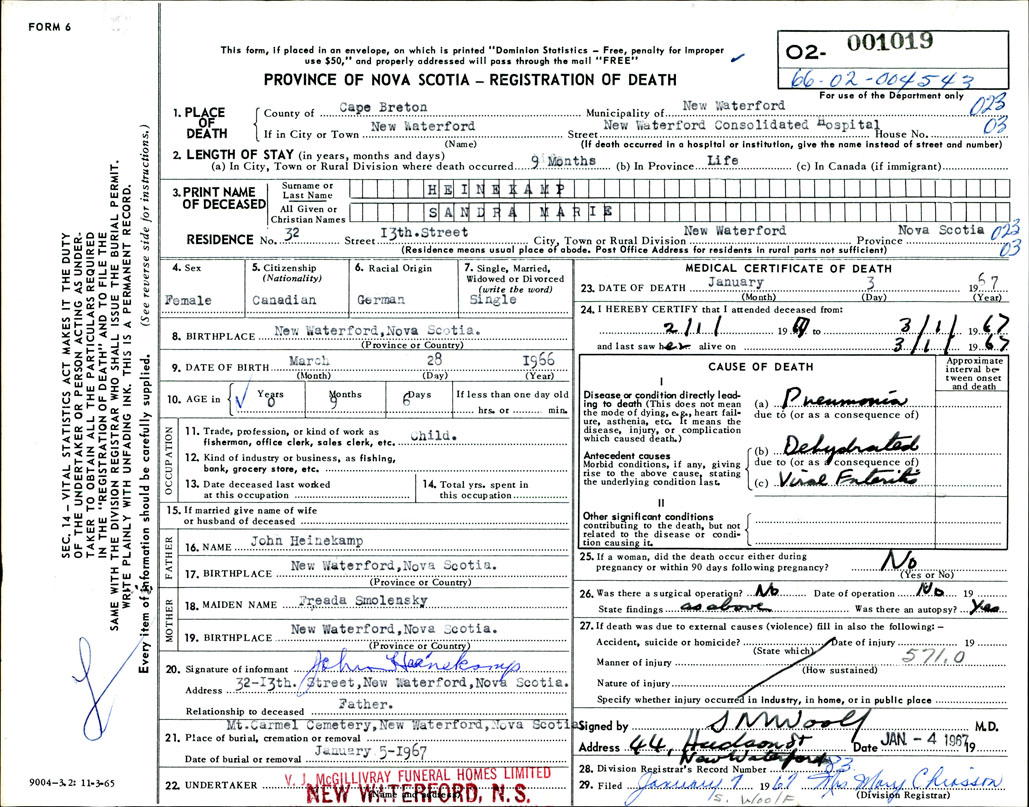 FORM 6
This form, if placed in an envelope, on which is printed "Dominion Statistics – Free, penalty for improper
use $50," and properly addressed will pass through the mail "FREE"
O2- 001019
66-02-004543
For use of the Department only
PROVINCE OF NOVA SCOTIA – REGISTRATION OF DEATH
SEC. 14 – VITAL STATISTICS ACT MAKES IT THE DUTY
OF THE UNDERTAKER OR PERSON ACTING AS UNDER-
TAKER TO OBTAIN ALL THE PARTICULARS REQUIRED
IN THE "REGISTRATION OF DEATH" AND TO FILE THE
SAME WITH THE DIVISION REGISTRAR WHO SHALL ISSUE THE BURIAL PERMIT.
WRITE PLAINLY WITH UNFADING INK. THIS IS A PERMANENT RECORD.
Every item of information should be carefully supplied. (See reverse side for instructions.)
1. PLACE OF DEATH
County of Cape Breton Municipality of New Waterford 023
If in City or Town New Waterford Street New Waterford Consolidated Hospital House No. 03
(Name) (If death occurred in a hospital or institution, give the name instead of street and number)
2. LENGTH OF STAY (in years, months and days)
(a) In City, Town or Rural Division where death occurred 9 Months (b) In Province Life (c) In Canada (if immigrant)
3. PRINT NAME OF DECEASED
Surname or Last Name HEINEKAMP
All Given or Christian Names SANDRA MARIE
RESIDENCE No. 32 Street I3th.Street City, Town or Rural Division New Waterford Province Nova Scotia 023
(Residence means usual place of abode. Post Office Address for residents in rural parts not sufficient) 03
4. Sex Female
5. Citizenship (Nationality) Canadian
6. Racial Origin German
7. Single, Married, Widowed or Divorced (write the word) Single
8. BIRTHPLACE New Waterford,Nova Scotia.
(Province or Country)
9. DATE OF BIRTH March 28 I966
(Month) (Day) (Year)
10. AGE in Years 0 Months 9 Days 6 If less than one day old
hrs. or min.
OCCUPATION
11. Trade, profession, or kind of work as
fisherman, office clerk, sales clerk, etc. Child.
12. Kind of industry or business, as fishing,
bank, grocery store, etc.
13. Date deceased last worked
at this occupation
14. Total yrs. spent in
this occupation
15. If married give name of wife
or husband of deceased
FATHER
16. NAME John Heinekamp
17. BIRTHPLACE New Waterford,Nova Scotia.
(Province or Country)
MOTHER
18. MAIDEN NAME Freada Smolensky
19. BIRTHPLACE New Waterford,Nova Scotia.
(Province or Country)
20. Signature of informant John Heinekamp
Address 32-I3th. Street,New Waterford,Nova Scotia.
Relationship to deceased Father.
Mt.Carmel Cemetery,New Waterford,Nova Scotia
21. Place of burial, cremation or removal
Date of burial or removal January 5-1967
22. UNDERTAKER V. J. McGILLIVRAY FUNERAL HOMES LIMITED
NEW WATERFORD, N. S.
9004-3.2: 11-3-65
MEDICAL CERTIFICATE OF DEATH
23. DATE OF DEATH January 3 1967
(Month) (Day) (Year)
24. I HEREBY CERTIFY that I attended deceased from:
2/1/ 19 67 to 3/1/ 1967
and last saw her alive on 3/1/ 1967
CAUSE OF DEATH
Approximate interval between onset and death
I
Disease or condition directly leading to death (This does not mean the mode of dying, e.g., heart failure, asthenia, etc. It means the disease, injury, or complication which caused death.)
(a) Pneumonia
due to (or as a consequence of)
Antecedent causes
Morbid conditions, if any, giving rise to the above cause, stating the underlying condition last.
(b) Dehydrated
due to (or as a consequence of)
(c) Viral Enteritis
II
Other significant conditions
contributing to the death, but not related to the disease or condition causing it.
25. If a woman, did the death occur either during
pregnancy or within 90 days following pregnancy? No
(Yes or No)
26. Was there a surgical operation? No Date of operation No 19
State findings as above Was there an autopsy? Yes
27. If death was due to external causes (violence) fill in also the following:–
Accident, suicide or homicide? Date of injury 19
(State which) 571.0
Manner of injury
(How sustained)
Nature of injury
Specify whether injury occurred in Industry, in home, or in public place
Signed by S M Woolf M.D.
Address 44, Hudson St Date JAN - 4 1967 19
New Waterford
28. Division Registrar's Record Number 83
29. Filed January 7 1967 Mrs Mary Chiasson
(Division Registrar)
S. Woolf